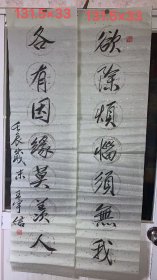 131.5×33
131.5×33
欲除烦恼须無我
各有因缘莫羡人
壬辰岁末